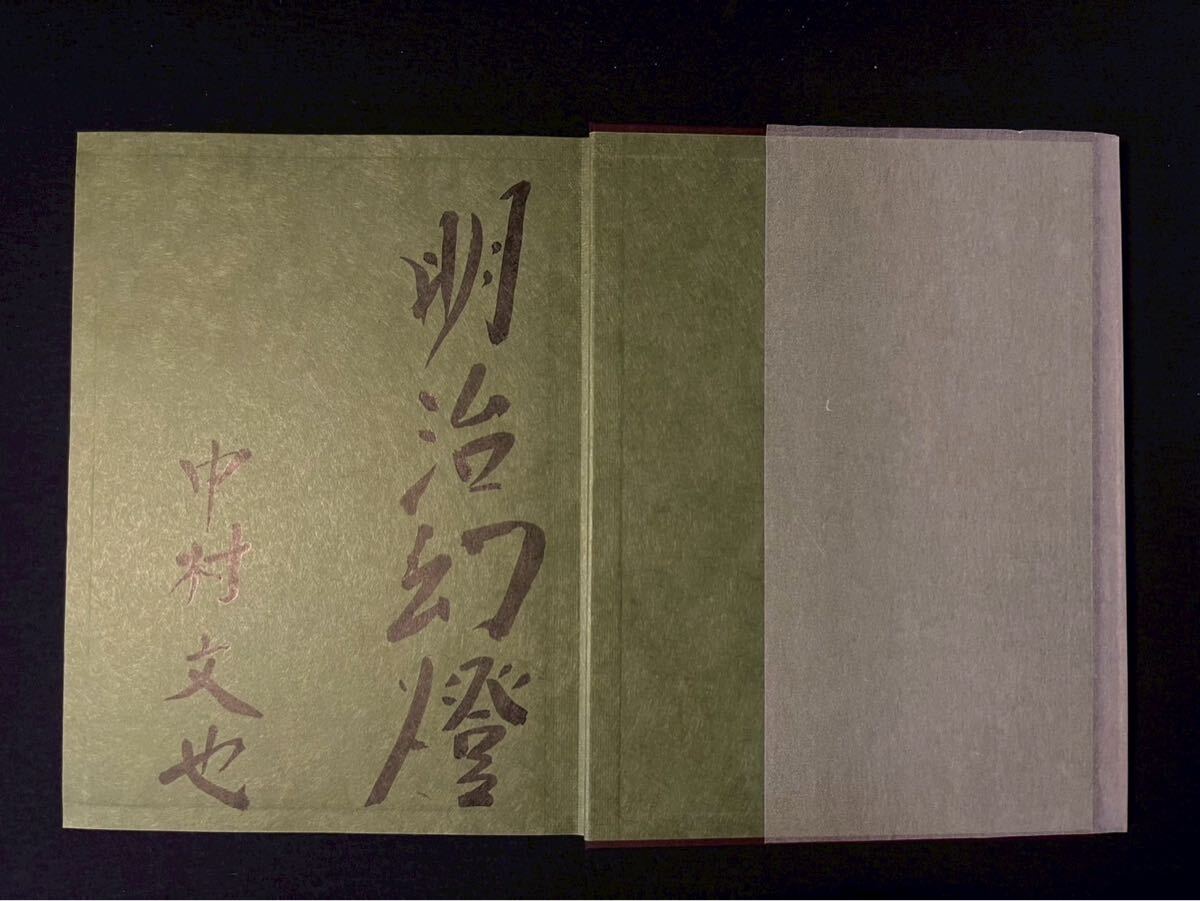 明治幻燈
中村文也